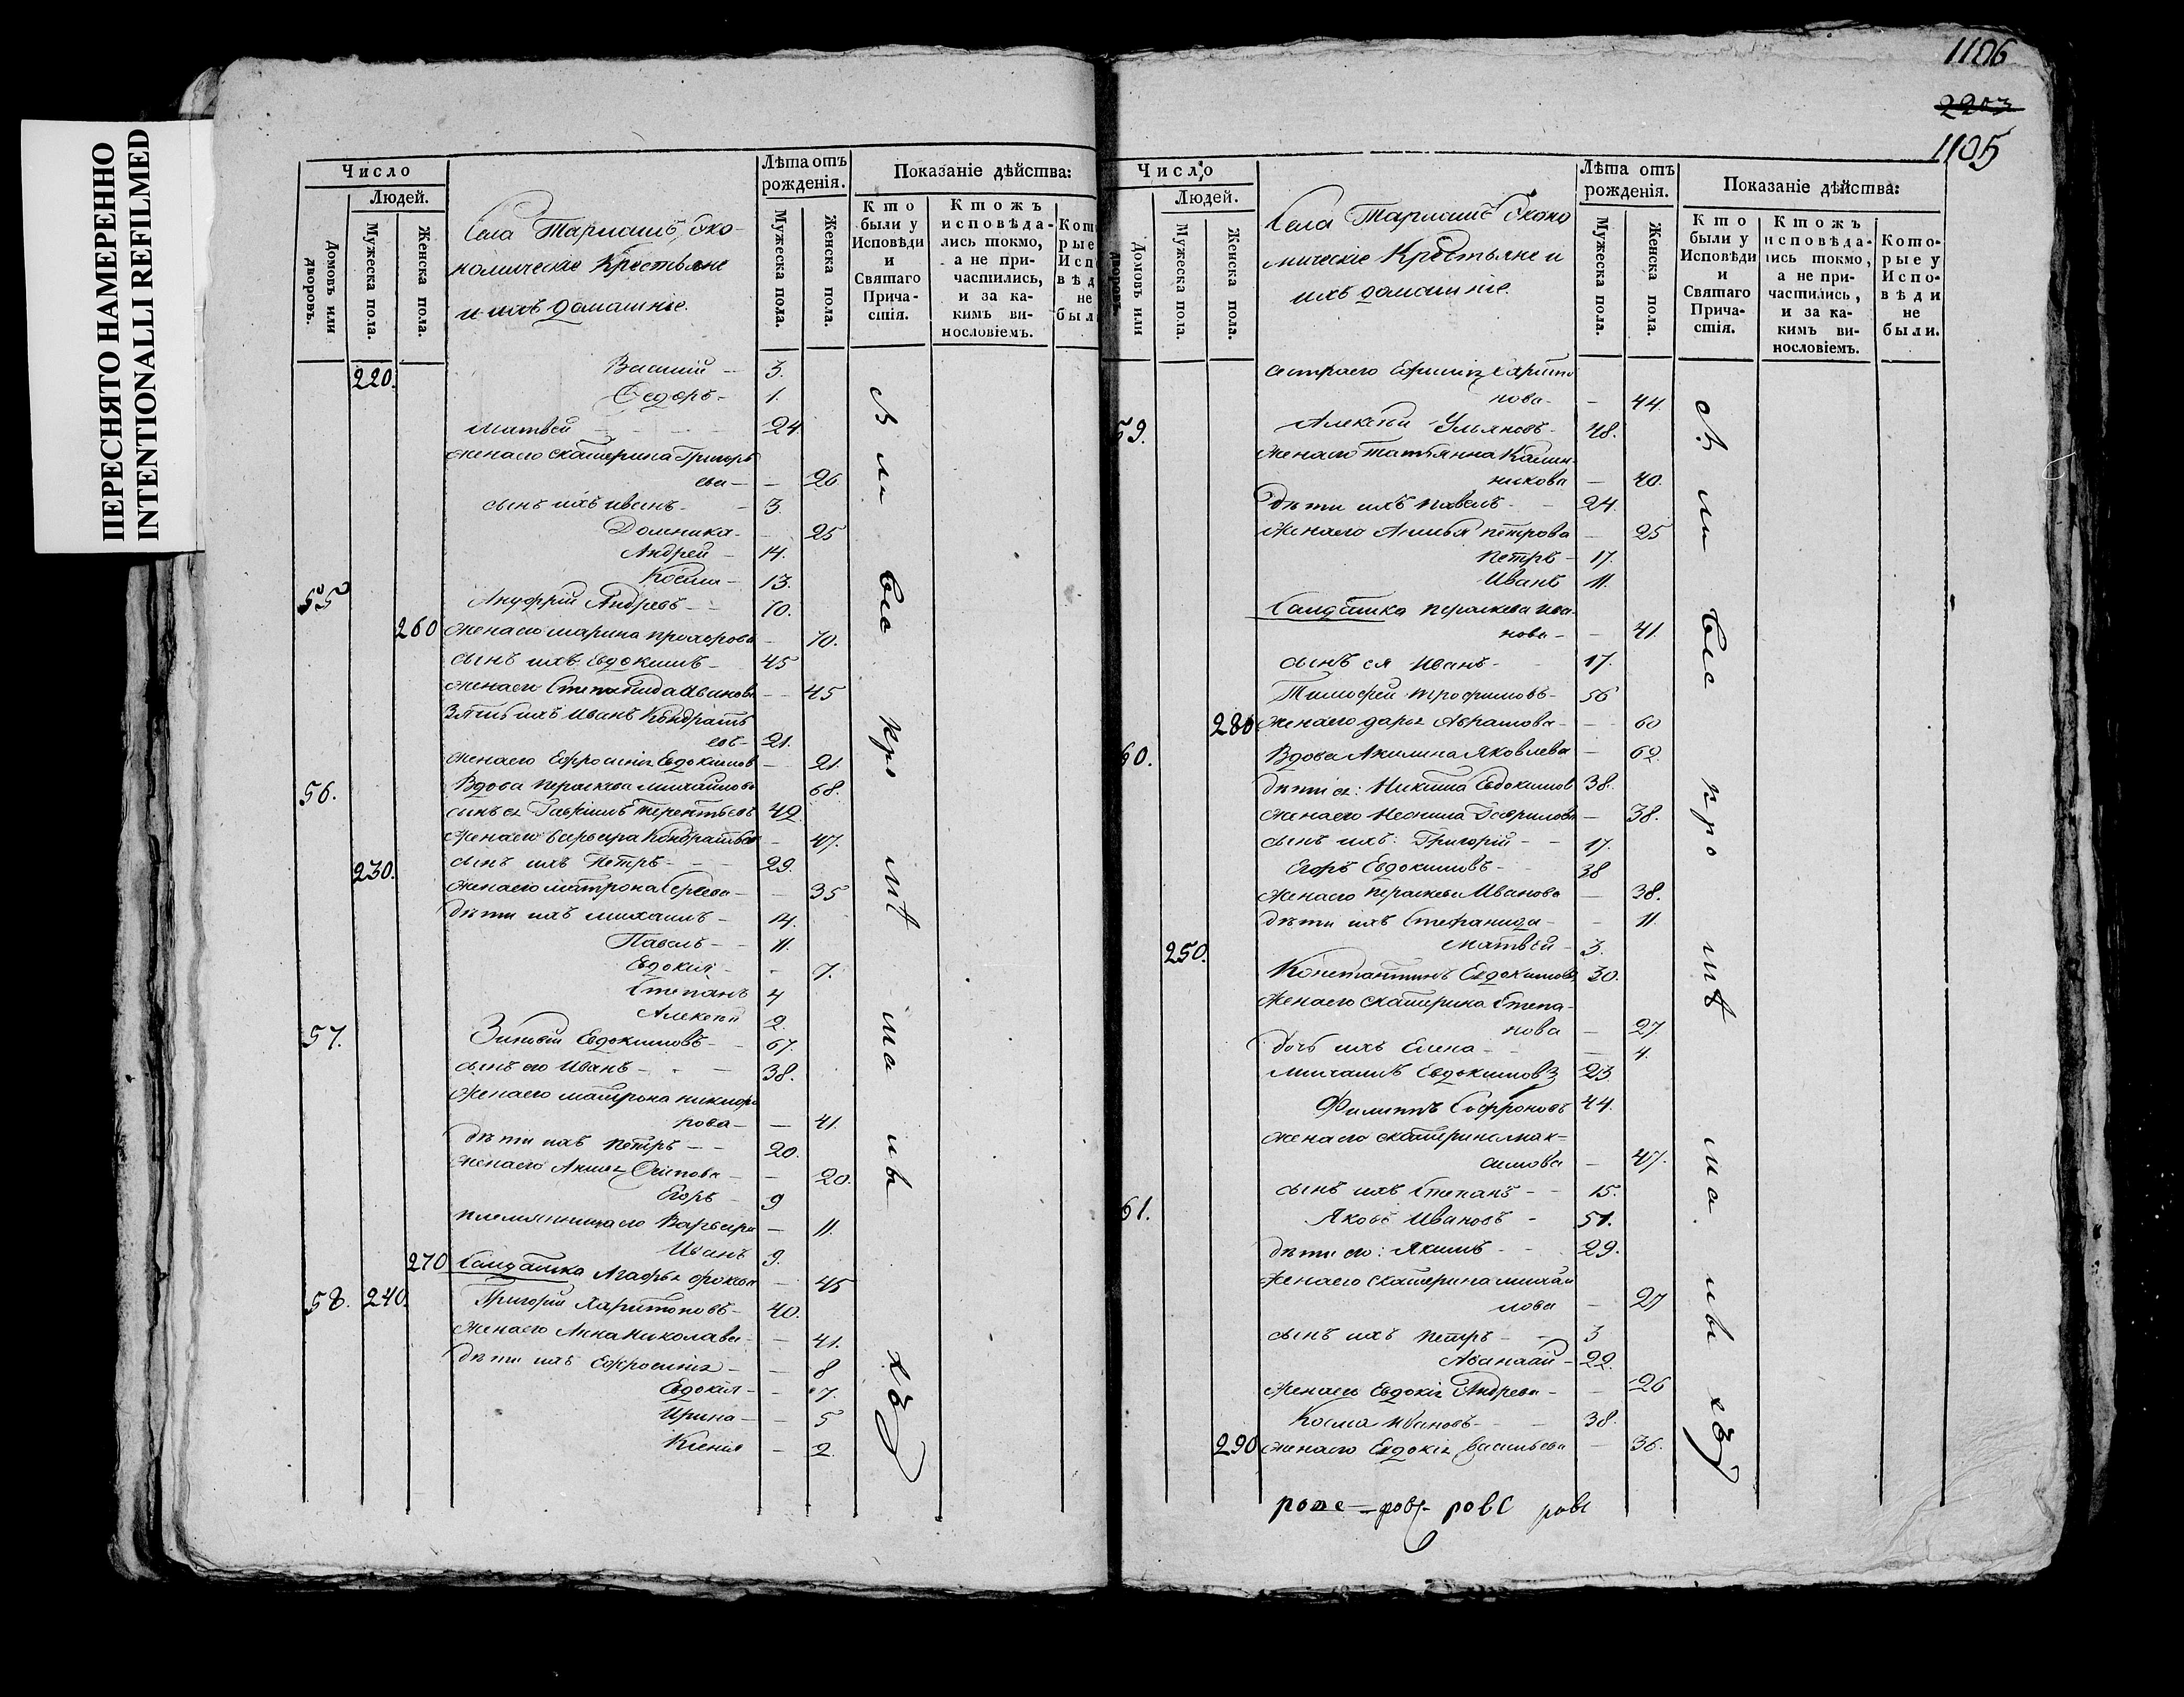 ПЕРЕСНЯТО НАМЕРЕННО
INTENTIONALLI REFILMED
1106
2203
1105
Число
Людей.
Домовъ или дворовъ.
Мужеска пола.
Женска пола.
Села экономическіе Крестьяне
и ихъ домашніе.
Лѣта отъ рожденія.
Мужеска пола.
Женска пола.
Показаніе дѣйства:
Кто были у Исповѣди и Святаго Причастія.
Ктожъ исповѣдались токмо, а не причастились, и за какимъ винословіемъ.
220. Василий - 3.
Федоръ - 1.
Матвей - 24.
жена его Екатерина Григорь
ева - 26.
сынъ ихъ Иванъ - 3.
Домника - 25
Андрей - 14.
Косма - 13.
55 Ануфрій Андреевъ - 70.
260 жена его Марина Прохорова - 70.
сынъ ихъ Евдокимъ - 45
жена его Степанида Иванова - 45
Зять ихъ Иванъ Кондрать
евъ - 21.
жена его Ефросинія Евдокимов - 21.
56. Вдова Параскева Михайлова 68.
сынъ ея Терентьевъ 42.
жена его Варвара Кондратьева - 47.
230. сынъ ихъ Петръ - 29.
жена его Матрона Сергеева - 35
дѣти ихъ Михаилъ - 14.
Павелъ - 11.
Евдокія - 7.
Степанъ 4
Алексей 2.
57. Зиновій Евдокимовъ - 67.
сынъ его Иванъ - 38.
жена его Матрона Никифо
рова - 41.
дѣти ихъ Петръ - 20.
жена его Осипова - 20.
Егоръ - 9
племянница его Варвара - 11.
Иванъ 9.
270 Салдатка Агафья - 45
58. 240. Григорій Харитоновъ - 40.
жена его Анна Николаева - 41.
дѣти ихъ Ефросинія - 8
Евдокія - 7.
Ирина - 5
Ксенія - 2.
Число
Людей.
Домовъ или дворовъ.
Мужеска пола.
Женска пола.
Села Эконо
мическіе Крестьяне и
ихъ домашніе.
Лѣта отъ рожденія.
Мужеска пола.
Женска пола.
Показаніе дѣйства:
Кто были у Исповѣди и Святаго Причастія.
Ктожъ исповѣдались токмо, а не причастились, и за какимъ винословіемъ.
Которые у Исповѣди не были.
сестра его Харито
нова - 44.
59. Алексѣй Ульяновъ - 48.
жена его Татьянна Калин
никова - 40.
дѣти ихъ Павелъ - 24.
жена его Петрова - 25
Петръ - 17.
Иванъ 11.
Салдатка Параскева Ива
нова - 41.
сынъ ея Иванъ - 17.
Тимофей Трофимовъ - 56
280 жена его Дарья Абрамова - 60
60. Вдова Акилина Яковлева - 62.
дѣти ея: Никита Евдокимов 38.
жена его Неонила Гаврилова - 38.
сынъ ихъ: Григорій - 17.
Егоръ Евдокимовъ - 38
жена его Параскева Иванова - 38.
дѣти ихъ Стефанида - 11.
250. Матвей - 3.
Константинъ Евдокимовъ 30.
жена его Екатерина Степа-
нова - 27
дочь ихъ Елена - 4.
Михаилъ Евдокимовъ 23.
Филиппъ Софроновъ 44.
жена его Екатерина Мак-
симова - 47.
сынъ ихъ Степанъ - 15.
61. Яковъ Ивановъ - 51.
дѣти его: Якимъ - 29.
жена его Екатерина Михай
лова - 27
сынъ ихъ Петръ - 3
Афанасій - 22.
жена его Евдокія Андреева - 26
Косма Ивановъ - 38.
290 жена его Евдокія Васильева - 36.